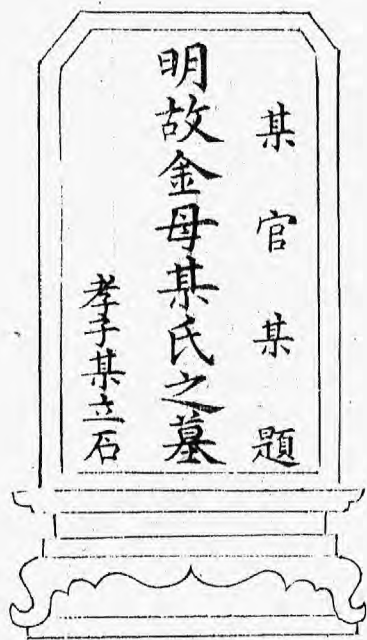 某官某題
明故金母某氏之墓
孝子某立石